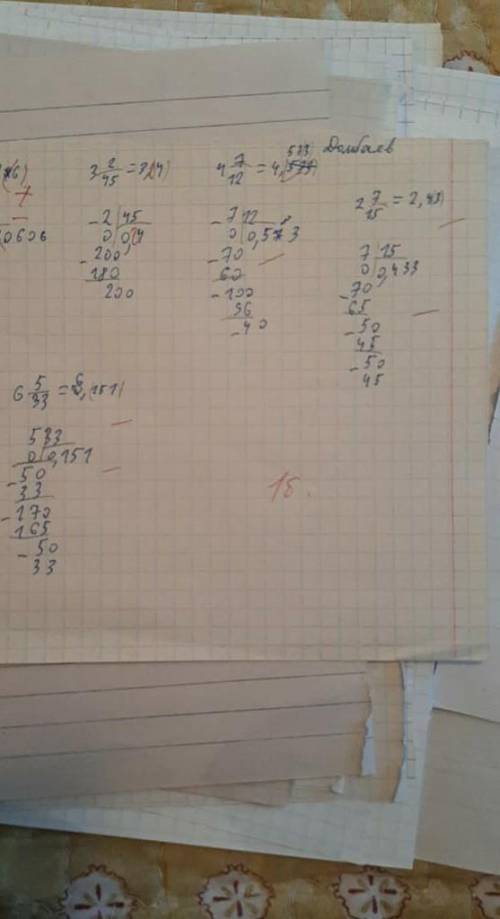 Долбаев
3 2/45 = 3,(4)
- 2 | 45
0 | 0,4
- 200
180
200
4 7/12 = 4,(573)
- 7 | 12
0 | 0,573
- 70
60
- 100
96
- 40
2 7/15 = 2,43)
7 | 15
0 | 0,433
- 70
65
- 50
45
- 50
45
0606
6 5/33 = 6,(151)
5 | 33
0 | 0,151
- 50
33
- 170
165
- 50
33
15.